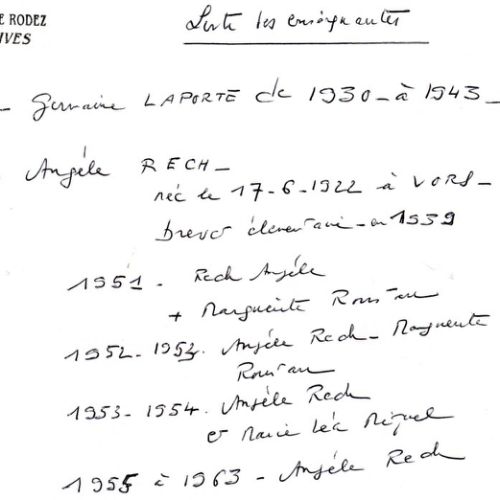 E RODEZ
IVES
Liste des enseignantes
- Germaine LAPORTE de 1930 - à 1943 -
Angèle RECH -
née le 17-6-1922 à VORS -
brevet élémentaire - en 1939
1951 - Rech Angèle
+ Marguerite
1952-1953. Angèle Rech - Marguerite
1953-1954. Angèle Rech
et Marie Léa Miquel
1955 à 1963 - Angèle Rech